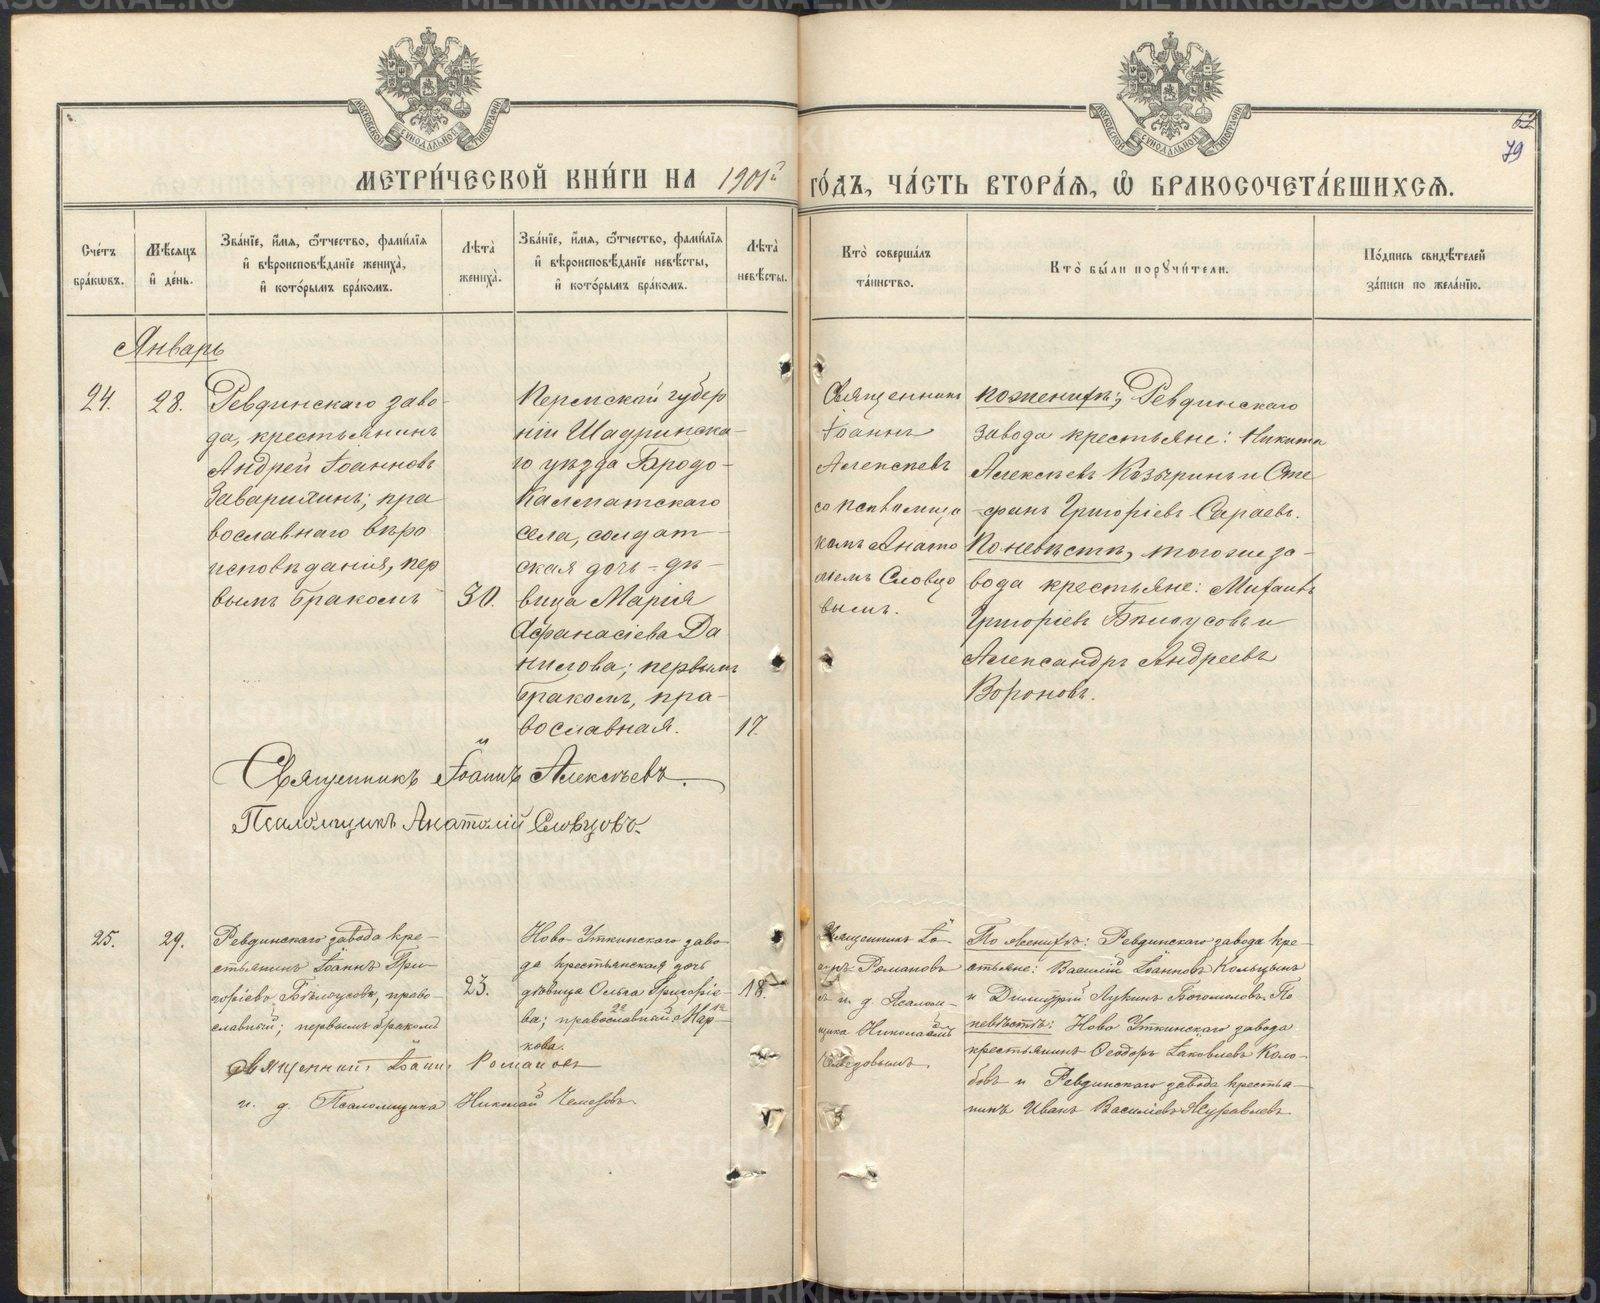 МЕТРИ́ЧЕСКОЙ КНИ́ГИ НА 1901й ГО́ДЪ, ЧА́СТЬ ВТОРА́Я, Ѡ҆ БРАКОСОЧЕТА́ВШИХСЯ.
79
Сче́тъ бра́кѡвъ.
Мѣ́сяцъ и҆ де́нь.
Зва́нїе, и҆́мя, ѻ҆́тчество, фами́лїя и҆ вѣроисповѣ́данїе жениха̀, и҆ кото́рымъ бра́комъ.
Лѣ́та жениха̀.
Зва́нїе, и҆́мя, ѻ҆́тчество, фами́лїя и҆ вѣроисповѣ́данїе невѣ́сты, и҆ кото́рымъ бра́комъ.
Лѣ́та невѣ́сты.
Кто̀ соверша́лъ та́инство.
Кто̀ бы́ли порꙋчи́тели.
По́дпись свидѣ́телей за́писи по жела́нїю.
Январь
24.
28.
Ревдинскаго заво-
да, крестьянинъ
Андрей Іоанновъ
Заварихинъ; пра
вославнаго вѣро
исповѣданія, пер
вымъ бракомъ
30.
Пермской губер
ніи Шадринска-
го уѣзда Бродо-
Калматскаго
села, солдат-
ская дочь-дѣ-
вица Марія
Афанасіева Да
нилова; первымъ
бракомъ, пра-
вославная.
17.
Священникъ
Іоаннъ
Алексѣевъ
со псаломщи
комъ Анато
ліемъ Словцо
вымъ.
По женихѣ; Ревдинскаго
завода крестьяне: Никита
Алексѣевъ Козыринъ и Сте
фанъ Григоріевъ Сараевъ.
По невѣстѣ, того же за-
вода крестьяне: Михаилъ
Григоріевъ Бѣлоусовъ и
Александръ Андреевъ
Вороновъ.
Священникъ Іоаннъ Алексѣевъ.
Псаломщикъ Анатолій Словцовъ.
25.
29.
Ревдинскаго завода кре-
стьянинъ Іоаннъ Гри-
горіевъ Бѣлоусовъ, право-
славный; первымъ бракомъ
23.
Ново-Уткинскаго заво
да крестьянская дочь
дѣвица Ольга Григоріе-
ва; православный Мар-
кова.
18.
Священникъ Іо-
Романовъ
и. д. Псалом-
щика Николаемъ
По женихѣ: Ревдинскаго завода кре-
стьяне: Василій Іоанновъ Кольцынъ
и Димитрій Лукинъ Богомоловъ. По
невѣстѣ: Ново Уткинскаго завода
крестьянинъ Ѳеодоръ Іаковлевъ Коло-
бовъ и Ревдинскаго завода крестья-
нинъ Иванъ Василіевъ Журавлевъ
Священникъ Іоаннъ Романовъ
и. д. Псаломщика Николай
METRIKI.GASO-URAL.RU